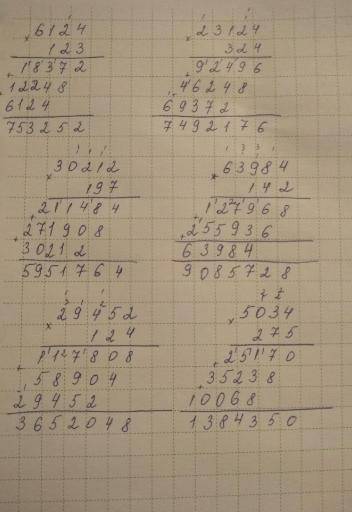 6124
× 123
18372
+ 12248
6124
753252
23124
× 324
92496
+ 46248
69372
7492176
30212
× 197
211484
+ 271908
30212
5951764
63984
× 142
127968
+ 255936
63984
9085728
29452
× 124
117808
+ 58904
29452
3652048
5034
× 275
25170
+ 35238
10068
1384350